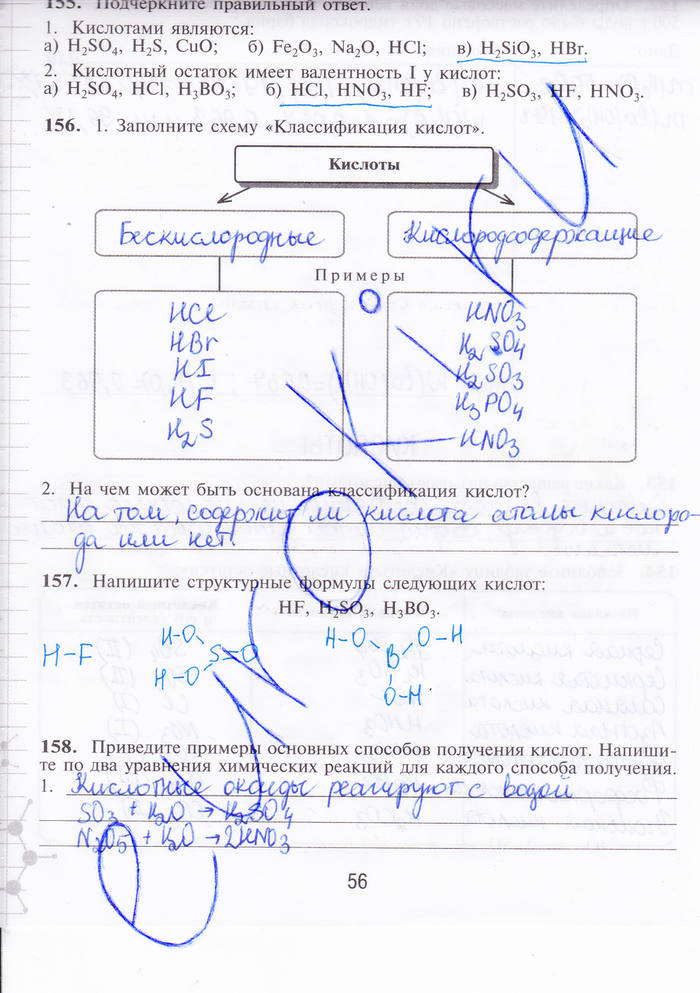 155. Подчеркните правильный ответ.
1. Кислотами являются:
а) H₂SO₄, H₂S, CuO; б) Fe₂O₃, Na₂O, HCl; в) H₂SiO₃, HBr.
2. Кислотный остаток имеет валентность I у кислот:
а) H₂SO₄, HCl, H₃BO₃; б) HCl, HNO₃, HF; в) H₂SO₃, HF, HNO₃.
156. 1. Заполните схему «Классификация кислот».
Кислоты
Бескислородные Кислородсодержащие
Примеры
HCl HNO₃
HBr H₂SO₄
HI H₂SO₃
HF H₃PO₄
H₂S HNO₃
2. На чем может быть основана классификация кислот?
На том, содержит ли кислота атомы кислоро-
да или нет.
157. Напишите структурные формулы следующих кислот:
HF, H₂SO₃, H₃BO₃.
H-O H-O O-H
H-F S=O B
H-O O-H
158. Приведите примеры основных способов получения кислот. Напиши-
те по два уравнения химических реакций для каждого способа получения.
1. Кислотные оксиды реагируют с водой
SO₃ + H₂O → H₂SO₄
N₂O₅ + H₂O → 2HNO₃
56